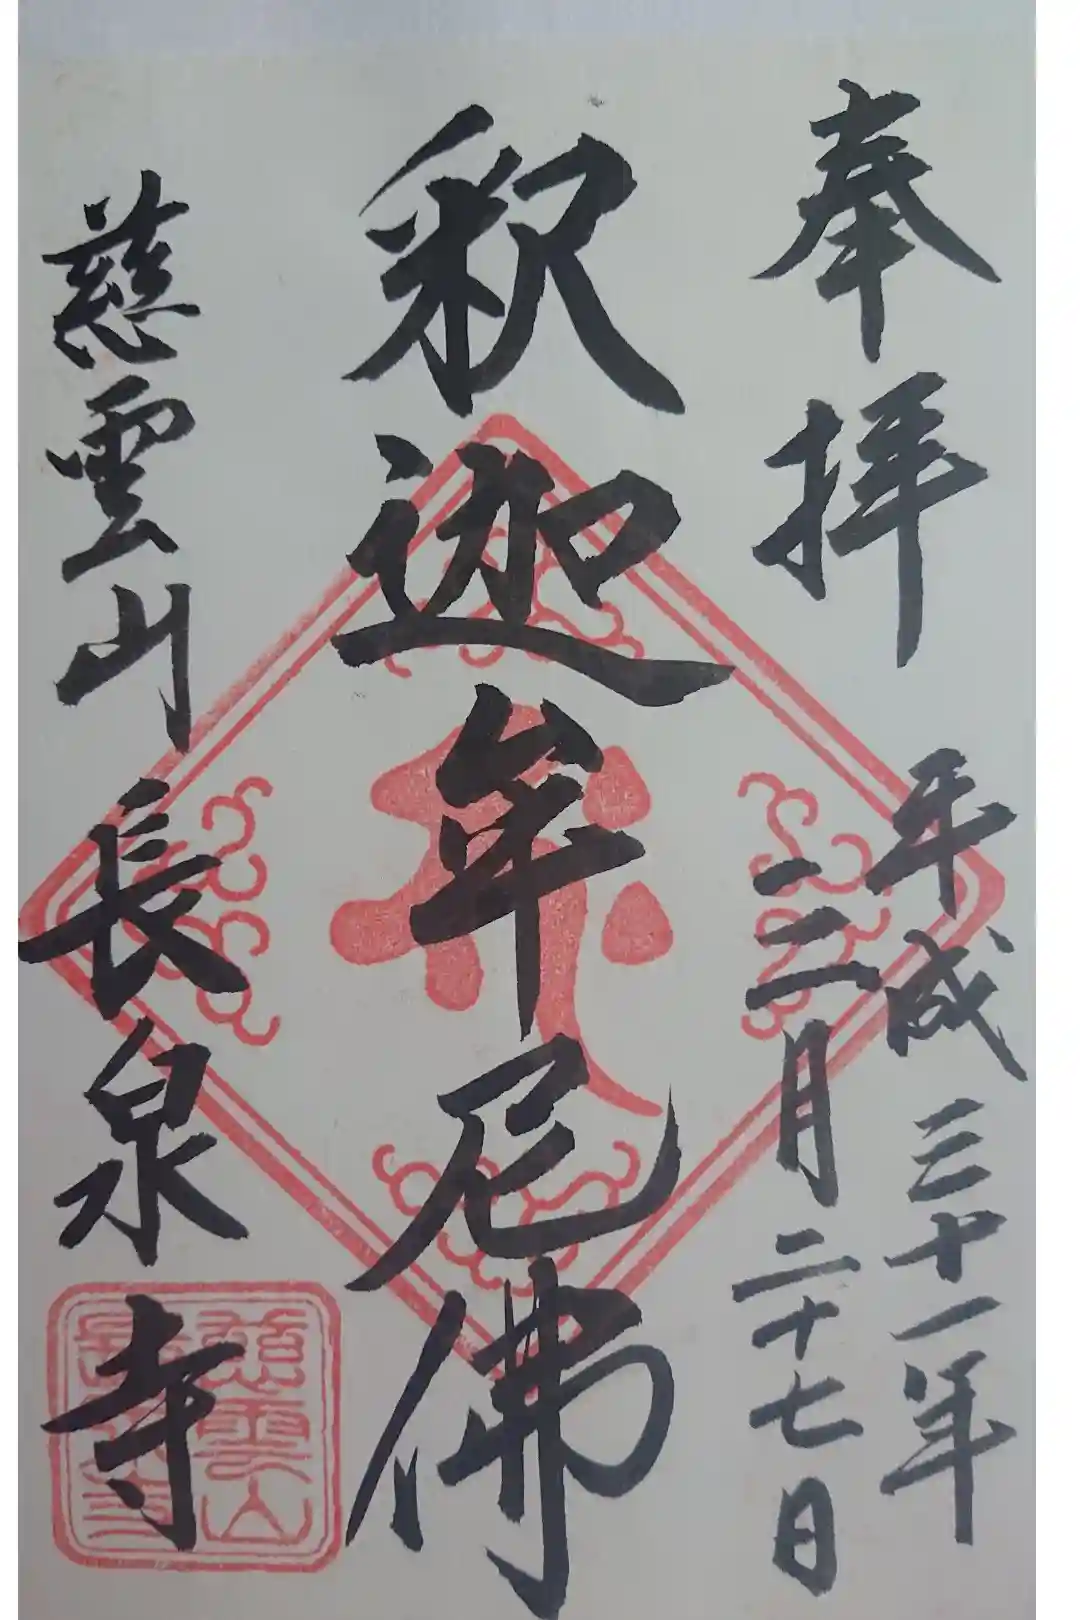 奉拝
平成三十一年
二月二十七日
釈迦牟尼佛
慈雲山
長泉寺
慈雲山
長泉寺